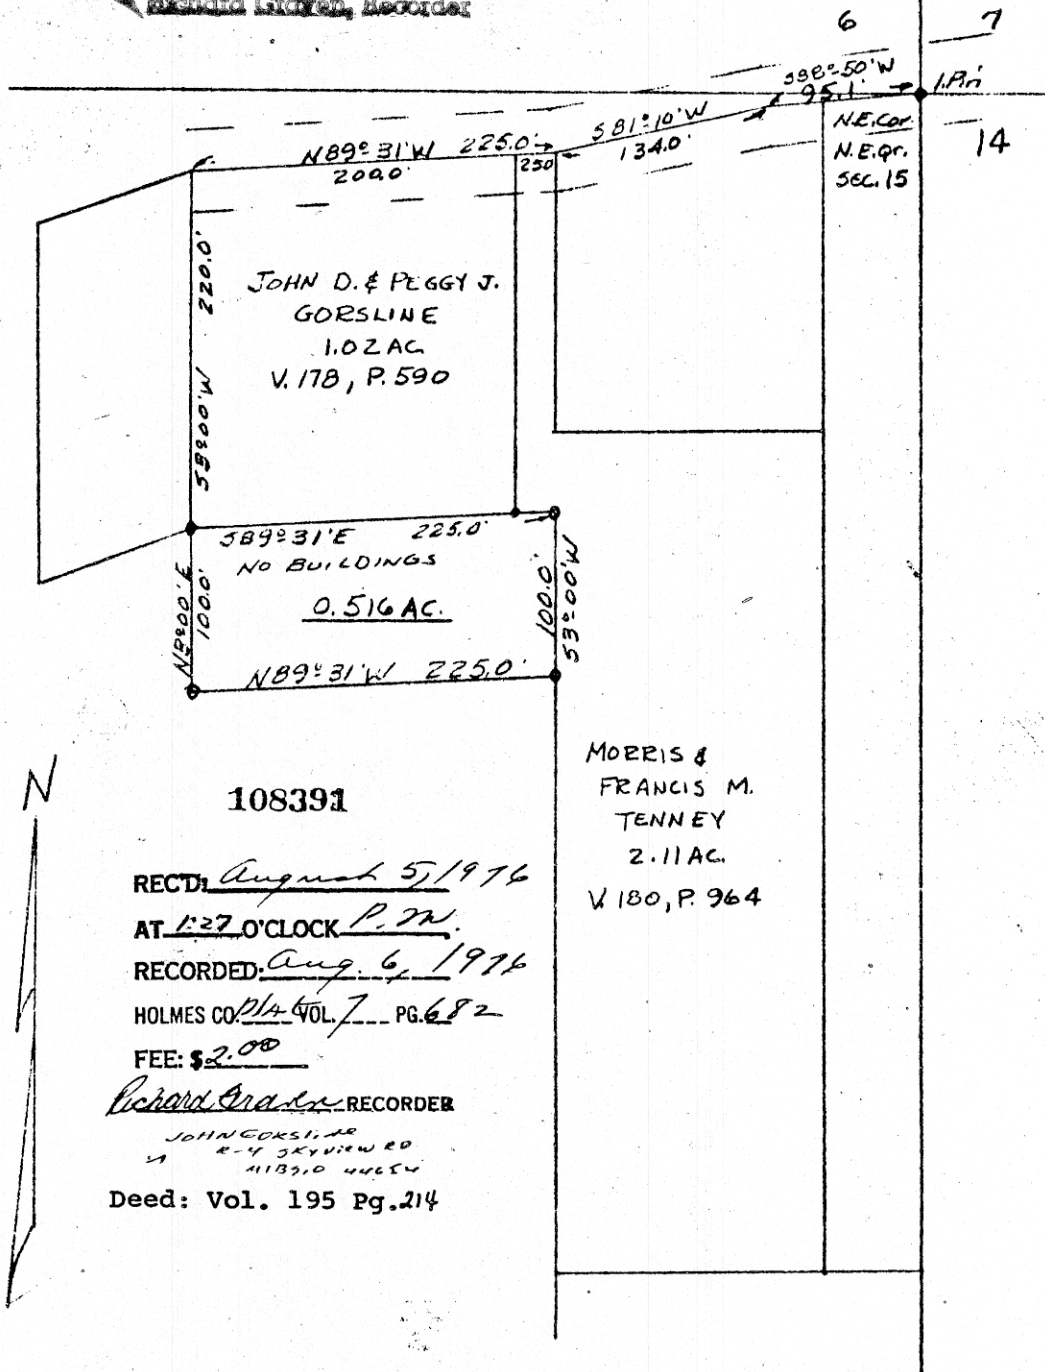 Richard Graven, Recorder
6 7
S88°50'W
95.1'
I.Pin
N.E.Cor.
N.E.Qr.
SEC. 15
14
S81°10'W
134.0'
N89°31'W 225.0'
200.0' 25.0
S3°00'W 220.0'
JOHN D. & PEGGY J.
GORSLINE
1.02 AC.
V. 178, P. 590
S89°31'E 225.0'
NO BUILDINGS
0.516 AC.
N3°00'E
100.0'
100.0'
S3°00'W
N89°31'W 225.0'
N
MORRIS &
FRANCIS M.
TENNEY
2.11 AC.
V. 180, P. 964
108391
REC'D: August 5, 1976
AT 1:27 O'CLOCK P.M.
RECORDED: Aug. 6, 1976
HOLMES CO. Plat VOL. 7 PG. 682
FEE: $2.00
Richard Graven RECORDER
JOHN GORSLINE
R-4 SKYVIEW RD
44654
Deed: Vol. 195 Pg. 214